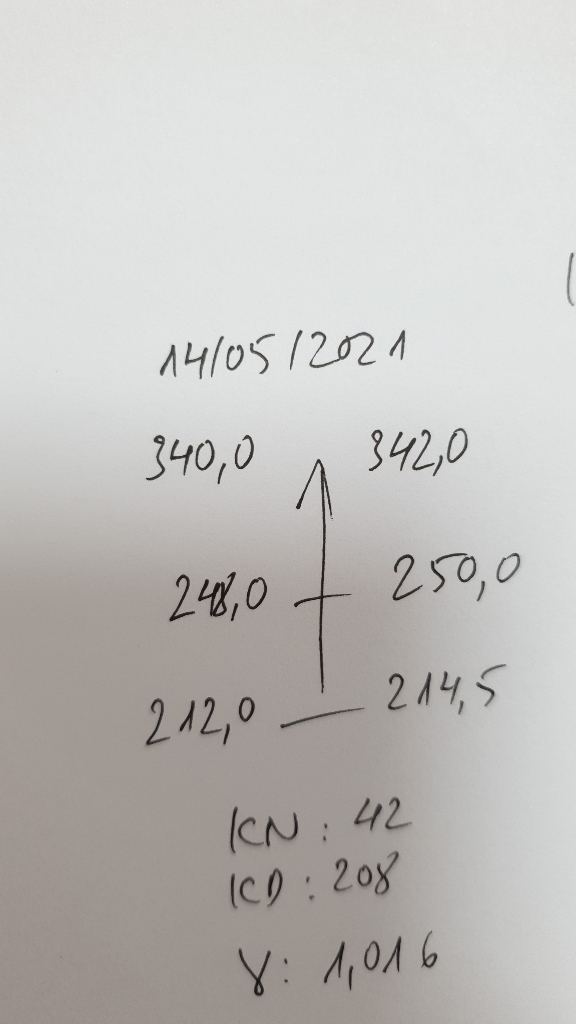 14/05/2021
340,0 342,0
248,0 250,0
212,0 214,5
KN: 42
KD: 208
γ: 1,016